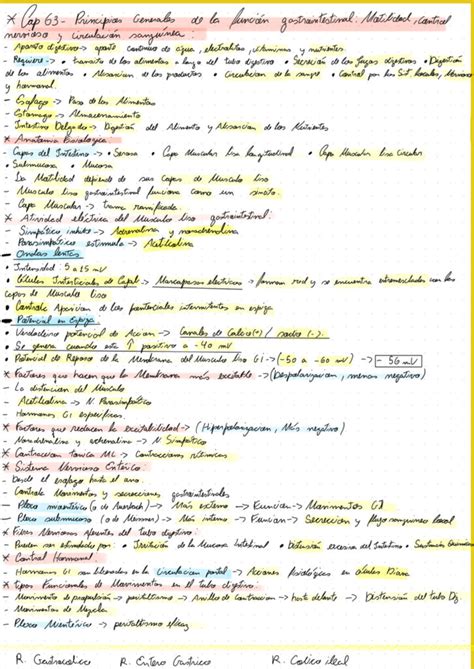 * Cap 63 - Principios Generales de la función gastrointestinal: Motilidad, Control
nervioso y circulación sanguínea:
- Aparato digestivo -> aporte continuo de agua, electrolitos, vitaminas y nutrientes.
- Requiere -> • transito de los alimentos a largo del tubo digestivo • Secreción de los jugos digestivos • Digestión
de los alimentos • Absorcion de los productos • Circulacion de la sangre • Control por los Sist. locales, Nervioso
y hormonal.
- Esofago -> Paso de los Alimentos
- Estomago -> Almacenamiento
- Intestino Delgado -> Digestión del Alimento y Absorcion de los Nutrientes
* Anatomia Fisiologica:
- Capas del Intestino -> • Serosa • Capa Muscular lisa longitudinal • Capa Muscular lisa circular
• Submucosa • Mucosa
- La Motilidad depende de sus capas de Musculo liso
- Musculo liso gastrointestinal funciona como un
- Capa Muscular -> trama ramificada.
* Atividad eléctrica del Musculo liso gastrointestinal:
- Simpático inhibe -> Adrenalina y noradrenalina
- Parasimpático estimula -> Acetilcolina
- Ondas lentas
• Intensidad: 5 a 15 mV
• Células Intersticiales de Cajal -> Marcapasos electricos -> forman red y se encuentra entremesclados con las
capas de Musculo liso
• Controla Aparicion de los potenciales intermitentes en espiga
- Potencial en Espiga
• Verdadeiro potencial de Accion -> Canales de Calcio (+) / sodio (-).
• Se genera cuando este ↑ positivo a -40 mV
• Potencial de Reposo de la Membrana del Musculo liso GI -> (-50 a -60 mV) -> - 56 mV
* Factores que hacen que la Membrana más excitable -> (Despolarizacion, menos negativo)
- La distencion del Musculo
- Acetilcolina -> N. Parasimpático
- Hormonas GI especificas.
* Factores que reducen la excitabilidad -> (Hiperpolarizacion, Más negativo)
- Noradrenalina y adrenalina -> N. Simpático
* Contraccion tonica ML -> Contracciones rítmicas
* Sistema Nervioso Entérico
- Desde el esofago hasta el ano.
- Controla Movimentos y secreciones gastrointestinales
- Plexo mientérico (o de Auerbach) -> Más externo -> Funcion -> Movimentos GI.
- Plexo submucoso (o de Meissner) -> Más interno -> Funcion -> Secrecion y flujo sanguineo local
* Fibras Nerviosas Aferentes del tubo digestivo:
• Pueden ser estimuladas por: • Irritación de la Mucosa Intestinal • Distensión excesiva del Intestino •
* Control Hormonal
- Hormonas GI son liberadas en la circulacion portal -> Acciones fisiológicas en células Diana
* tipos Funcionales de Movimentos en el tubo digestivo:
- Movimiento de propulsión -> peristaltismo -> Anillo de contraccion -> hacia delante -> Distensión del tubo Dg.
- Movimentos de Mezcla
- Plexo Mientérico -> peristaltismo eficaz
R. Gastrocolico R. Entero Gastrico R. Colico ileal